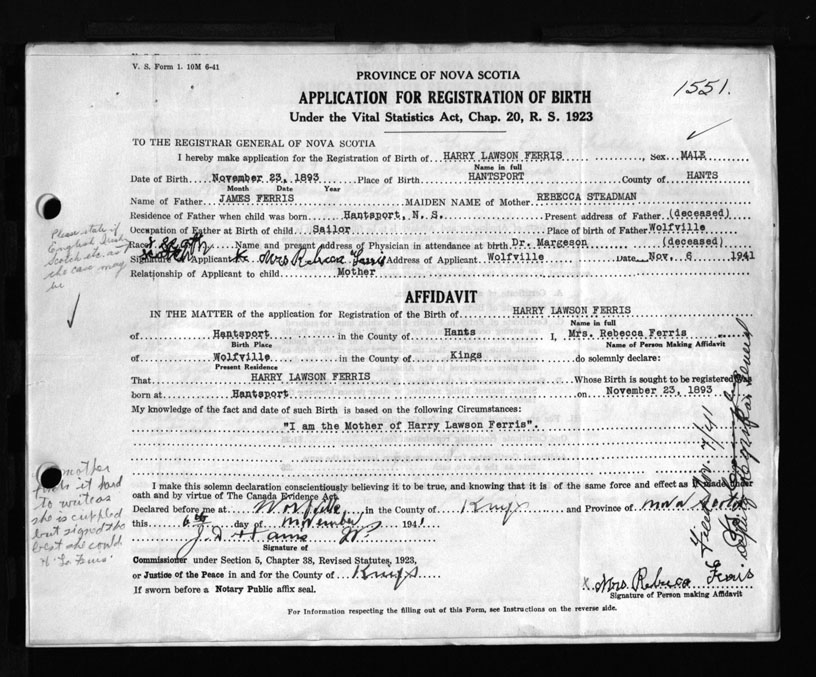 V. S. Form 1. 10M 6-41
PROVINCE OF NOVA SCOTIA
1551.
APPLICATION FOR REGISTRATION OF BIRTH
Under the Vital Statistics Act, Chap. 20, R. S. 1923
TO THE REGISTRAR GENERAL OF NOVA SCOTIA
I hereby make application for the Registration of Birth of HARRY LAWSON FERRIS, Sex MALE
Name in full
Date of Birth November 23, 1893 Place of Birth HANTSPORT County of HANTS
Month Date Year
Name of Father JAMES FERRIS MAIDEN NAME of Mother REBECCA STEADMAN
Residence of Father when child was born Hantsport, N. S. Present address of Father (deceased)
Occupation of Father at Birth of child Sailor Place of birth of Father Wolfville
Race Name and present address of Physician in attendance at birth Dr. Margeson (deceased)
Signature Applicant Mrs Rebecca Ferris Address of Applicant Wolfville Date Nov. 6 1941
Relationship of Applicant to child Mother
Please state if
English, Irish
Scotch etc. as
the case may
be
AFFIDAVIT
IN THE MATTER of the application for Registration of the Birth of HARRY LAWSON FERRIS
Name in full
of Hantsport in the County of Hants I, Mrs. Rebecca Ferris
Birth Place Name of Person Making Affidavit
of Wolfville in the County of Kings do solemnly declare:
Present Residence
That HARRY LAWSON FERRIS Whose Birth is sought to be registered was
born at Hantsport on November 23, 1893
My knowledge of the fact and date of such Birth is based on the following Circumstances:
"I am the Mother of Harry Lawson Ferris".
I make this solemn declaration conscientiously believing it to be true, and knowing that it is of the same force and effect as if made under
oath and by virtue of The Canada Evidence Act.
Declared before me at Wolfville in the County of Kings and Province of Nova Scotia
this 6th day of November 1941
Signature of
Commissioner under Section 5, Chapter 38, Revised Statutes, 1923,
or Justice of the Peace in and for the County of Kings
If sworn before a Notary Public affix seal.
mother
finds it hard
to write as
she is crippled
but signed the
best she could
Mrs. Rebecca Ferris
Signature of Person making Affidavit
For Information respecting the filling out of this Form, see Instructions on the reverse side.